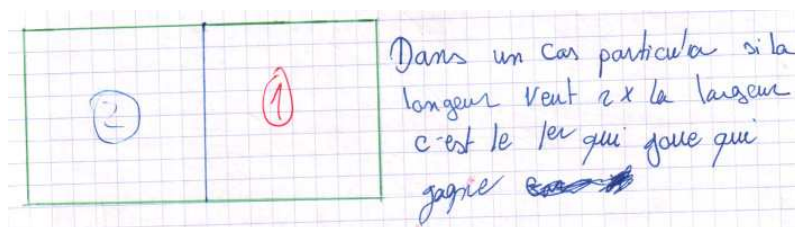 2
1
Dans un cas particuler si la
longeur veut 2x la largeur
c'est le 1er qui joue qui
gagne